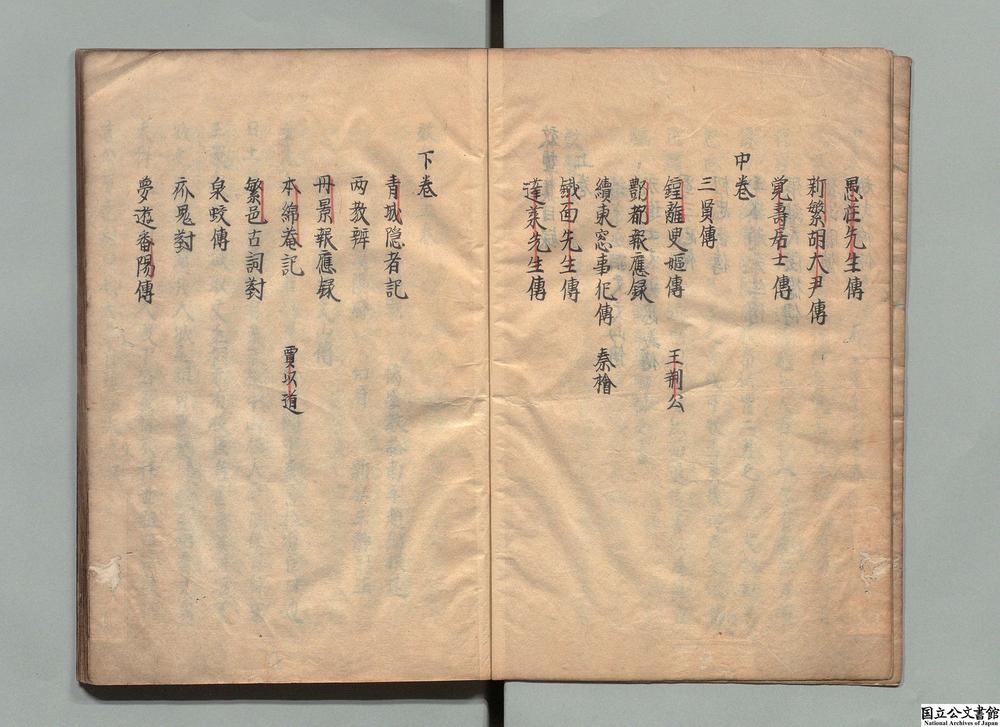 愚莊先生傳
新繁胡大尹傳
覚壽居士傳
中卷
三賢傳
鍾離叟嫗傳　王荊公
酆都報應録
續東窓事犯傳　秦檜
鐵面先生傳
蓬萊先生傳
下卷
青城隠者記
两教辨
丹景報應録
本綿菴記　賈似道
繁邑古詞對
泉蛟傳
疥鬼對
夢遊番陽傳
国立公文書館
National Archives of Japan